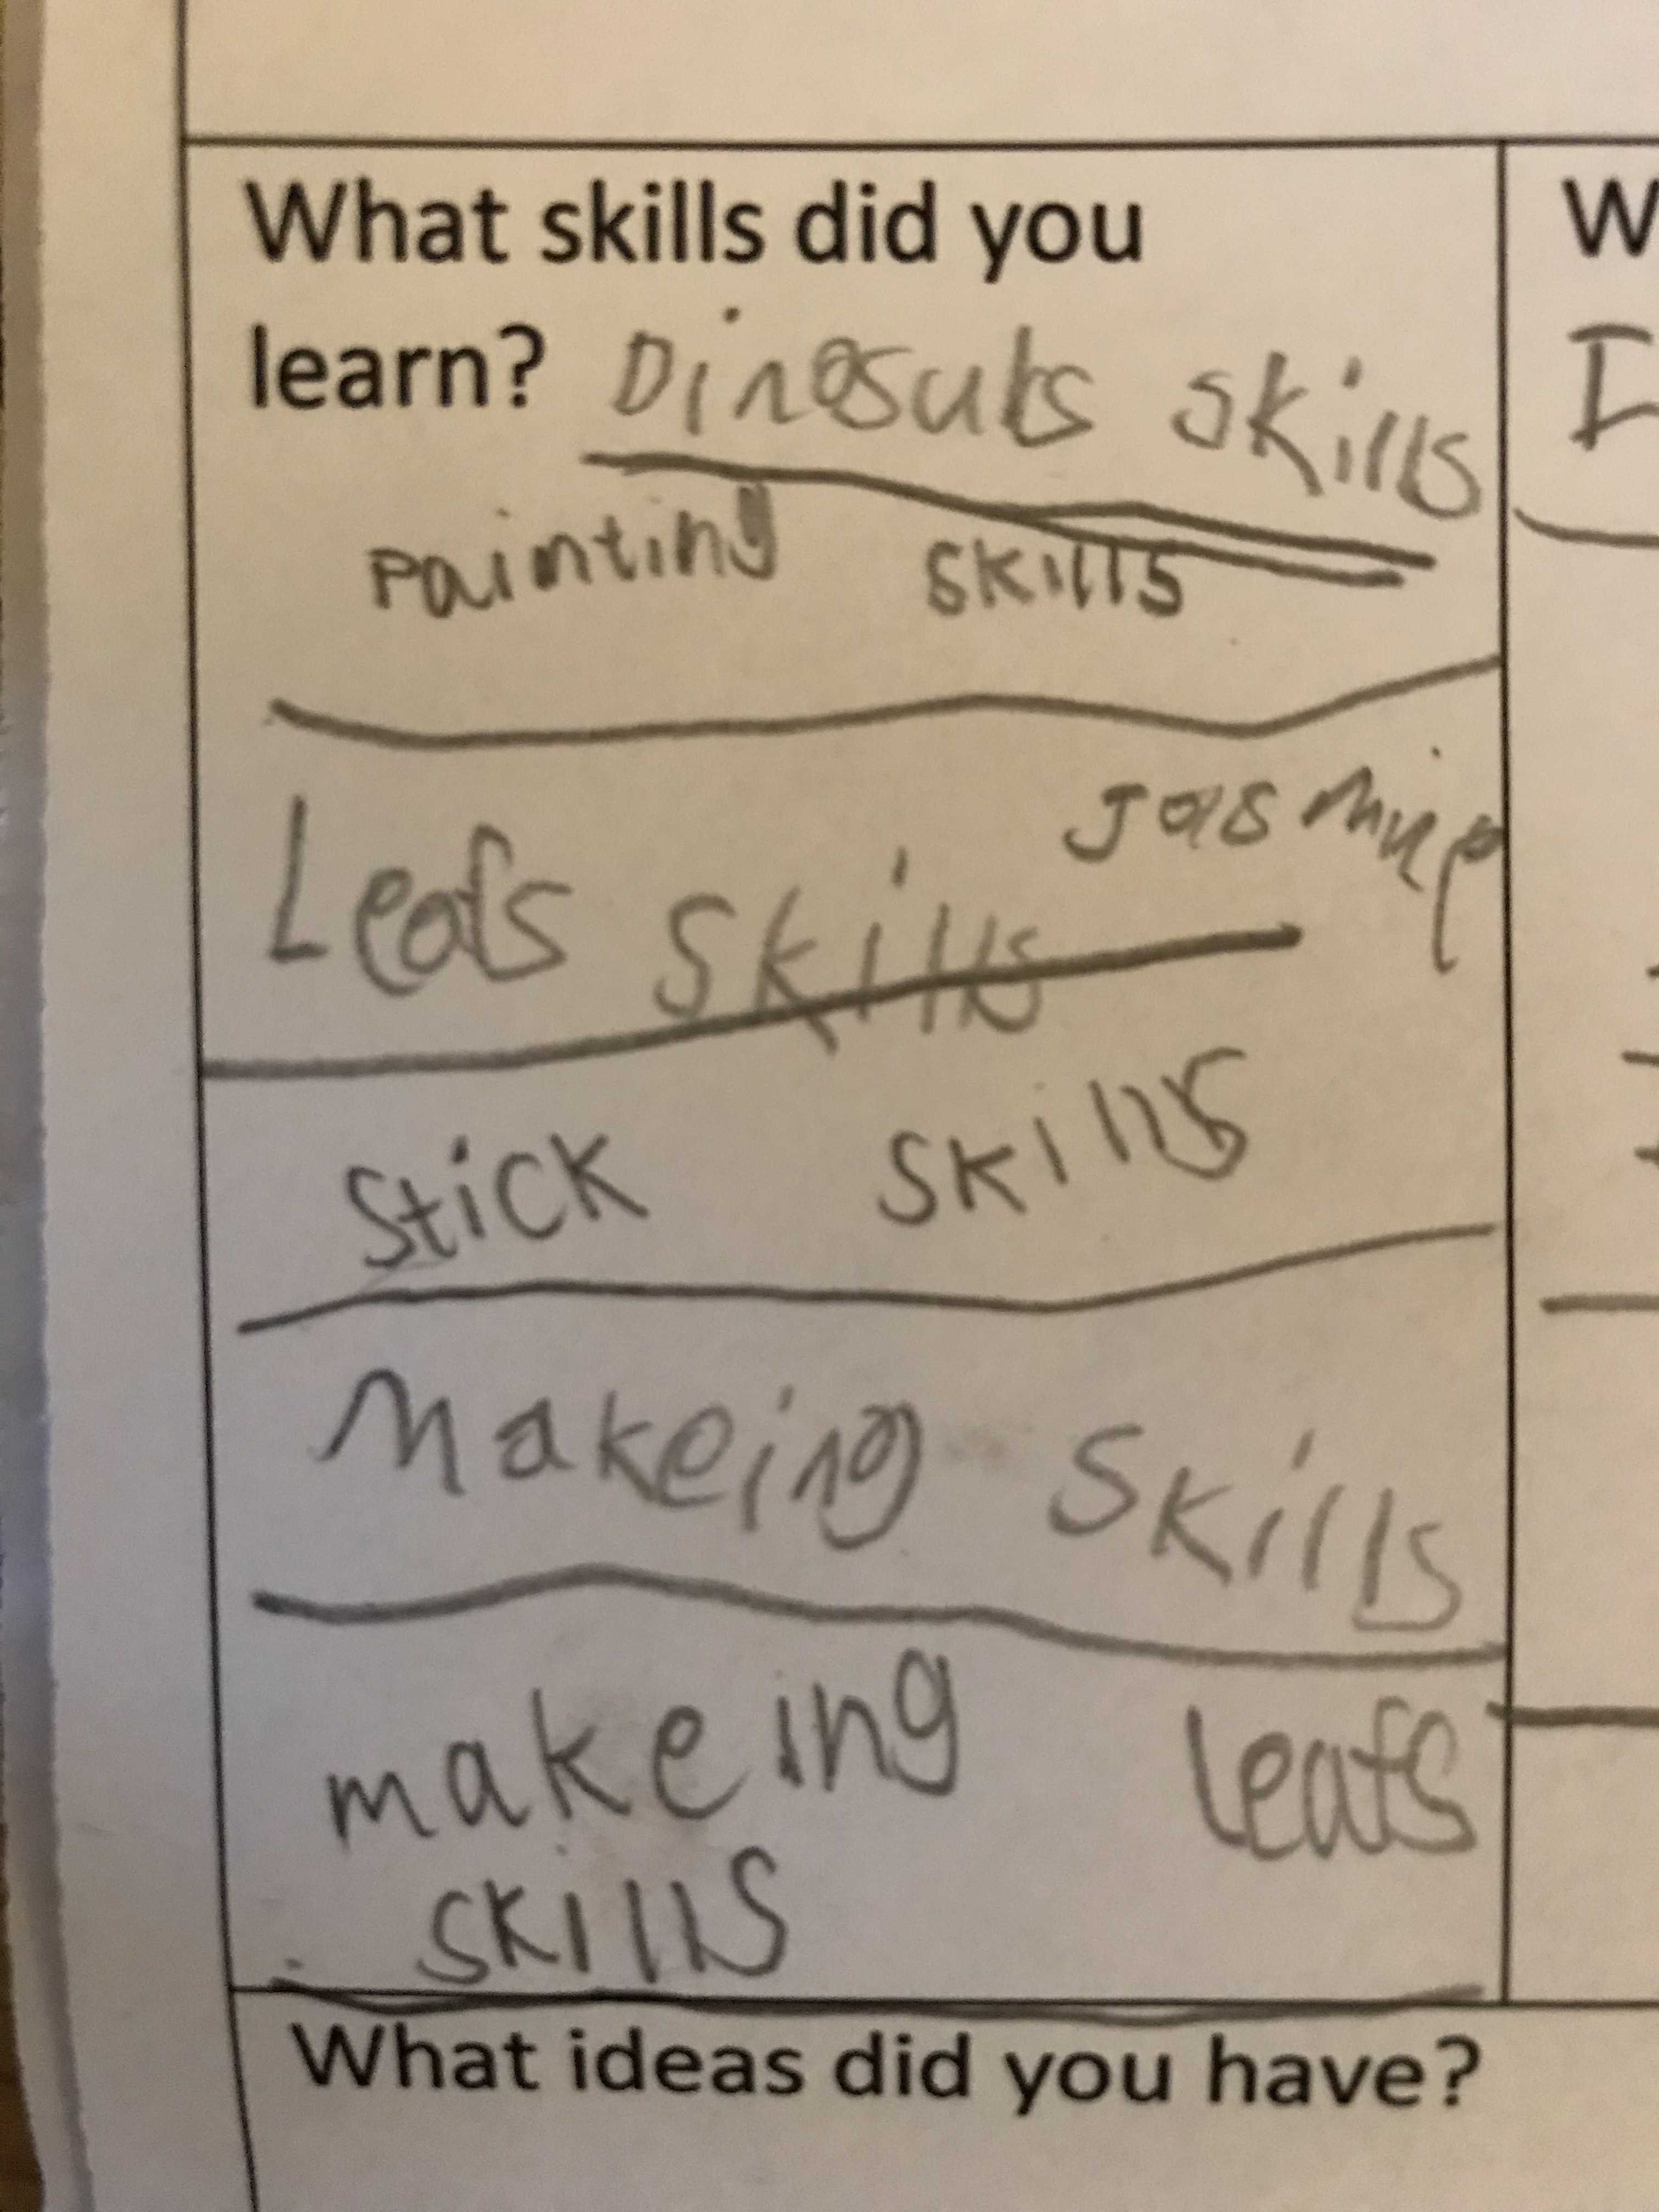 What skills did you
learn? Dinosuls skills
Painting skills
Jasmine
Leafs skills
Stick skills
Makeing skills
makeing leafs
skills
What ideas did you have?
W
I